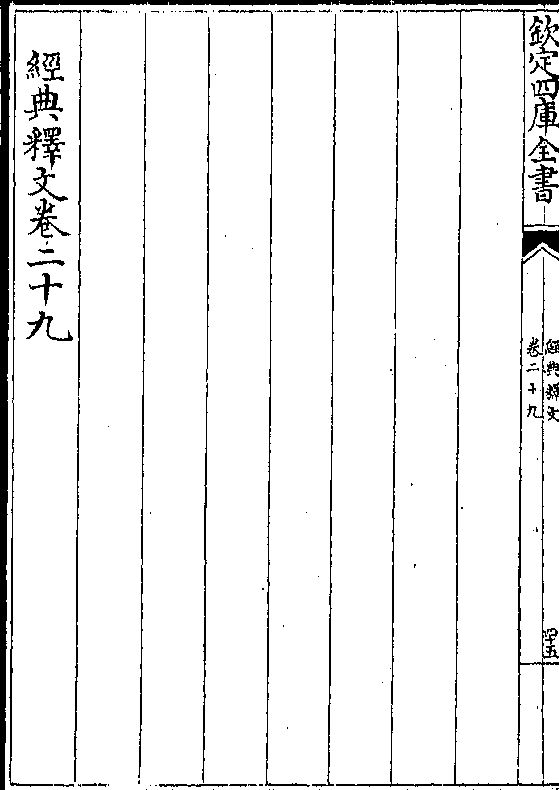 欽定四庫全書
經典釋文
卷二十九
四五
經典釋文卷二十九